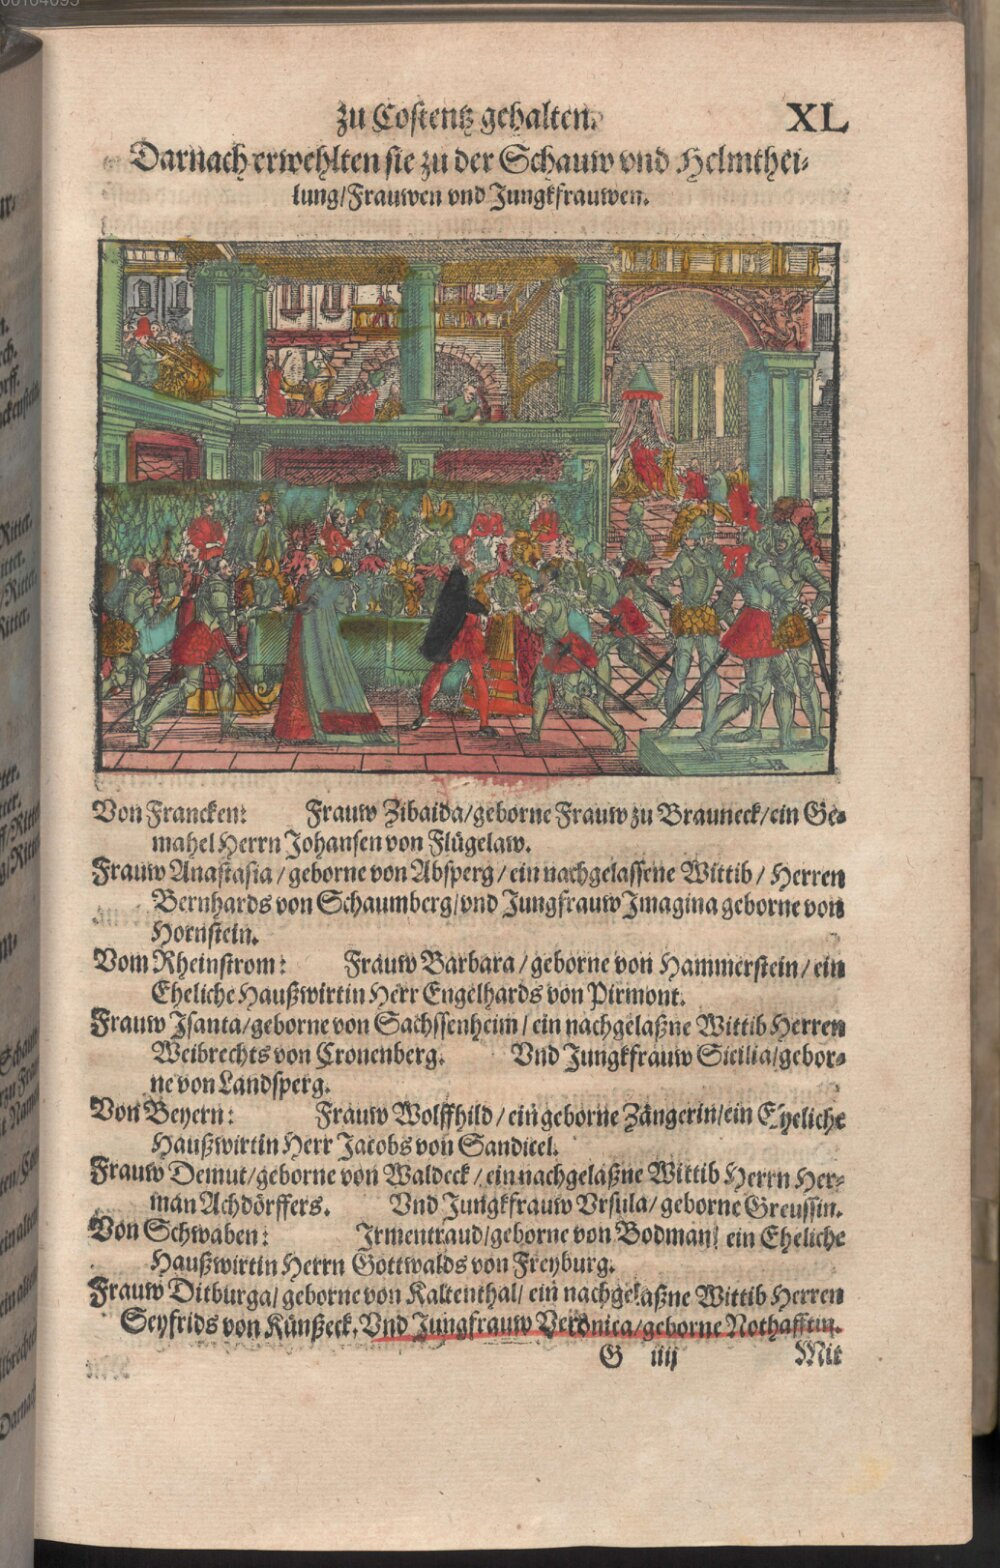 zu Costentz gehalten. XL
Darnach erwehlten sie zu der Schauw vnd Helmthei-
lung/Frauwen vnd Jungkfrauwen.
Von Francken: Frauw Zibaida/geborne Frauw zu Brauneck/ein Ge-
mahel Herrn Johansen von Flügelaw.
Frauw Anastasia/geborne von Absperg/ein nachgelassene Wittib/Herren
Bernhards von Schaumberg/vnd Jungfrauw Imagina geborne von
Hornstein.
Vom Rheinstrom: Frauw Barbara/geborne von Hammerstein/ein
Eheliche Haußwirtin Herr Engelhards von Pirmont.
Frauw Isanta/geborne von Sachssenheim/ein nachgelaßne Wittib Herren
Weibrechts von Cronenberg. Vnd Jungkfrauw Sicilia/gebor-
ne von Landsperg.
Von Beyern: Frauw Wolffhild/ein geborne Zängerin/ein Eheliche
Haußwirtin Herr Jacobs von Sanditel.
Frauw Demut/geborne von Waldeck/ein nachgelaßne Wittib Herrn Her-
man Achdörffers. Vnd Jungkfrauw Vrsula/geborne Greussin.
Von Schwaben: Irmentraud/geborne von Bodman/ein Eheliche
Haußwirtin Herrn Gottwalds von Freyburg.
Frauw Ditburga/geborne von Kaltenthal/ein nachgelaßne Wittib Herren
Seyfrids von Künßeck. Vnd Jungfrauw Veronica/geborne Nothafftin.
G iiij Mit